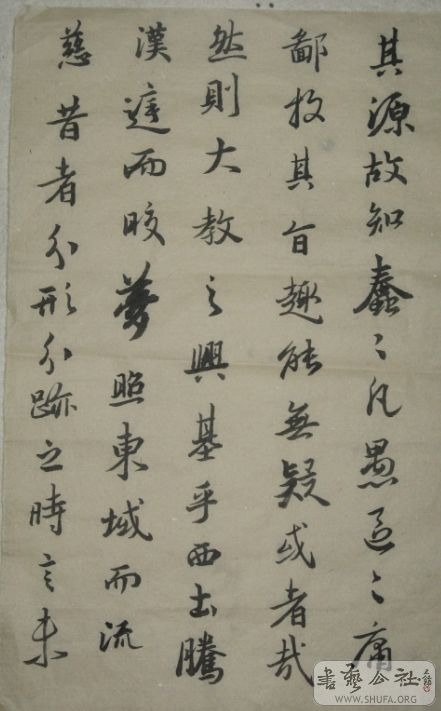 其源故知蠢〻凡愚區〻庸
鄙投其旨趣能無疑或者哉
然則大教之興基乎西土騰
漢庭而皎夢照東域而流
慈昔者分形分跡之時言未
書藝公社
WWW.SHUFA.ORG